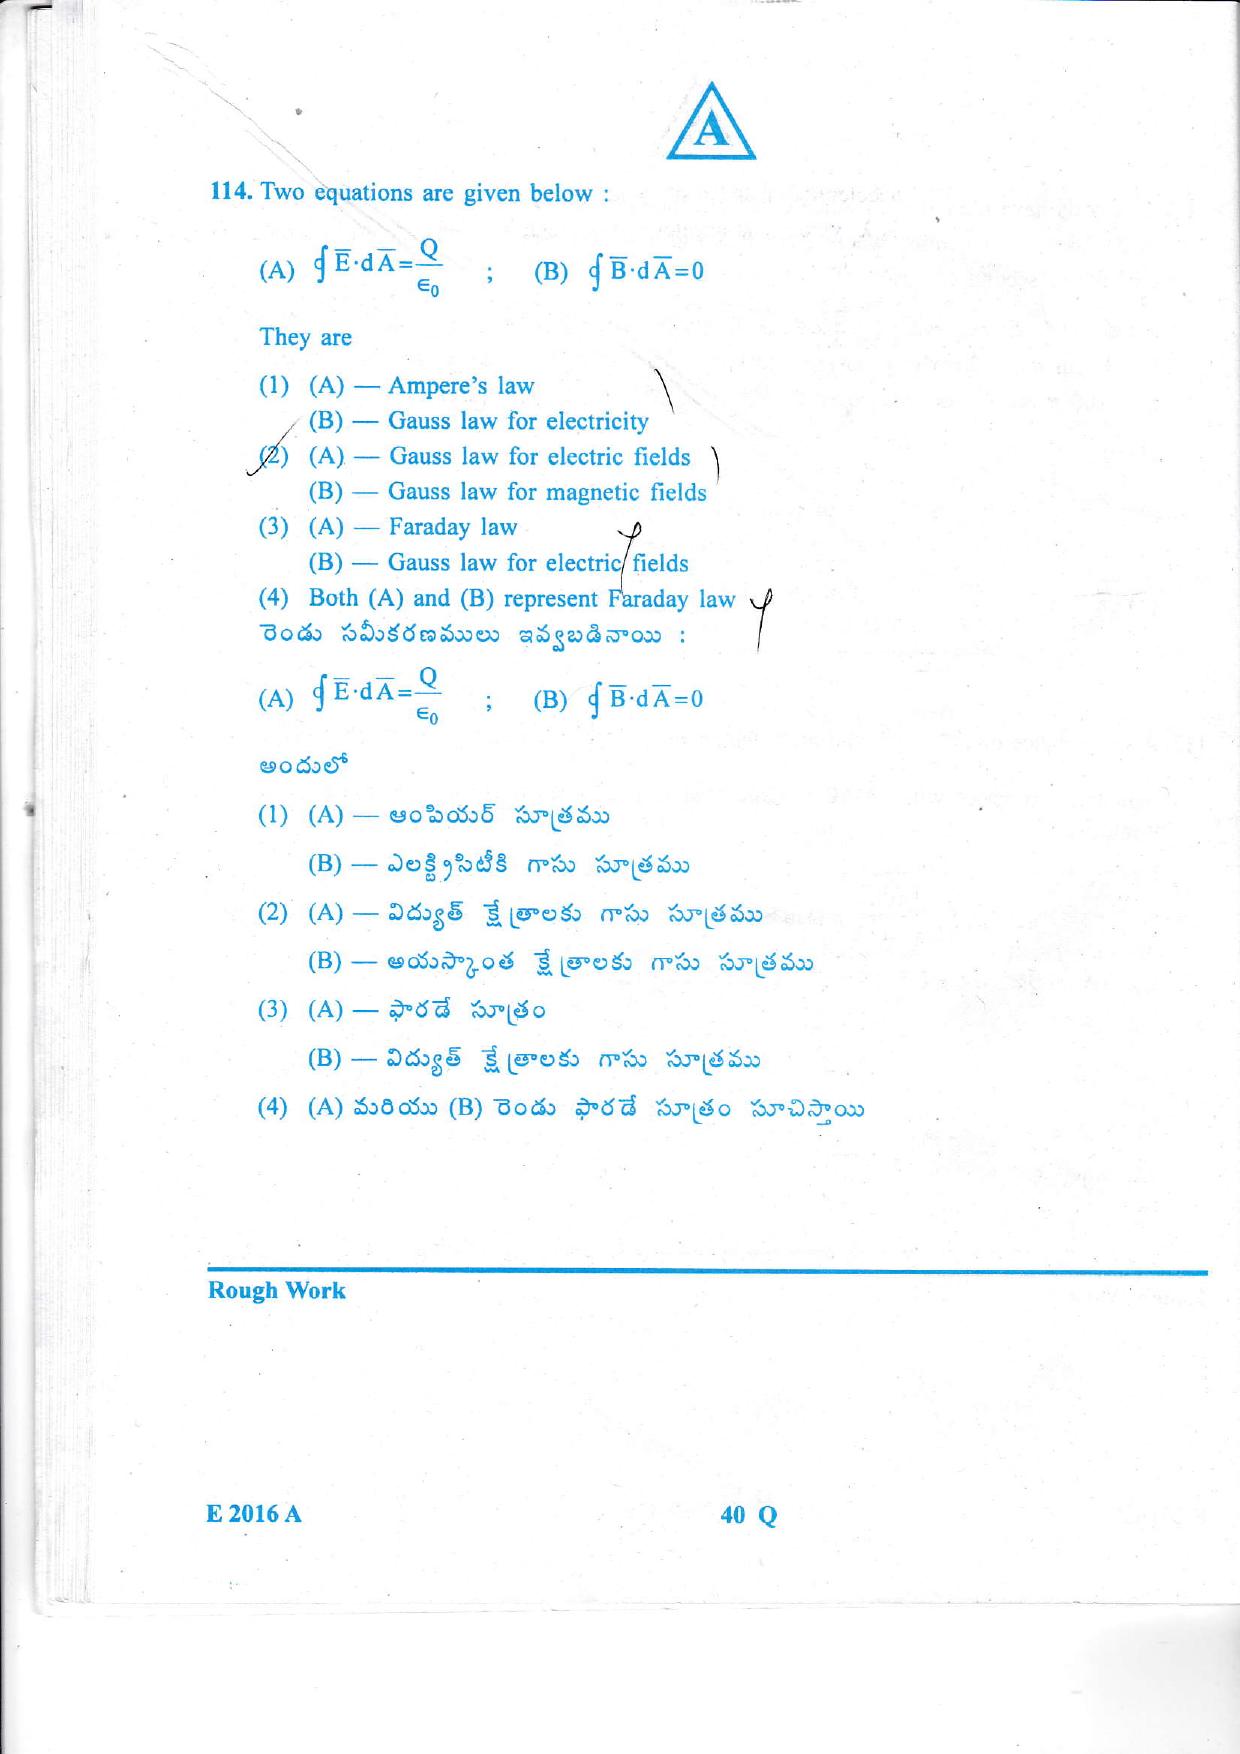 A
114. Two equations are given below :
(A) ∮ E̅·dA̅ = Q/ϵ₀ ; (B) ∮ B̅·dA̅=0
They are
(1) (A) — Ampere's law
(B) — Gauss law for electricity
(2) (A) — Gauss law for electric fields
(B) — Gauss law for magnetic fields
(3) (A) — Faraday law
(B) — Gauss law for electric fields
(4) Both (A) and (B) represent Faraday law
రెండు సమీకరణములు ఇవ్వబడినాయి :
(A) ∮ E̅·dA̅ = Q/ϵ₀ ; (B) ∮ B̅·dA̅=0
అందులో
(1) (A) — ఆంపియర్ సూత్రము
(B) — ఎలక్ట్రిసిటీకి గాసు సూత్రము
(2) (A) — విద్యుత్ క్షేత్రాలకు గాసు సూత్రము
(B) — అయస్కాంత క్షేత్రాలకు గాసు సూత్రము
(3) (A) — ఫారడే సూత్రం
(B) — విద్యుత్ క్షేత్రాలకు గాసు సూత్రము
(4) (A) మరియు (B) రెండు ఫారడే సూత్రం సూచిస్తాయి
Rough Work
E 2016 A 40 Q